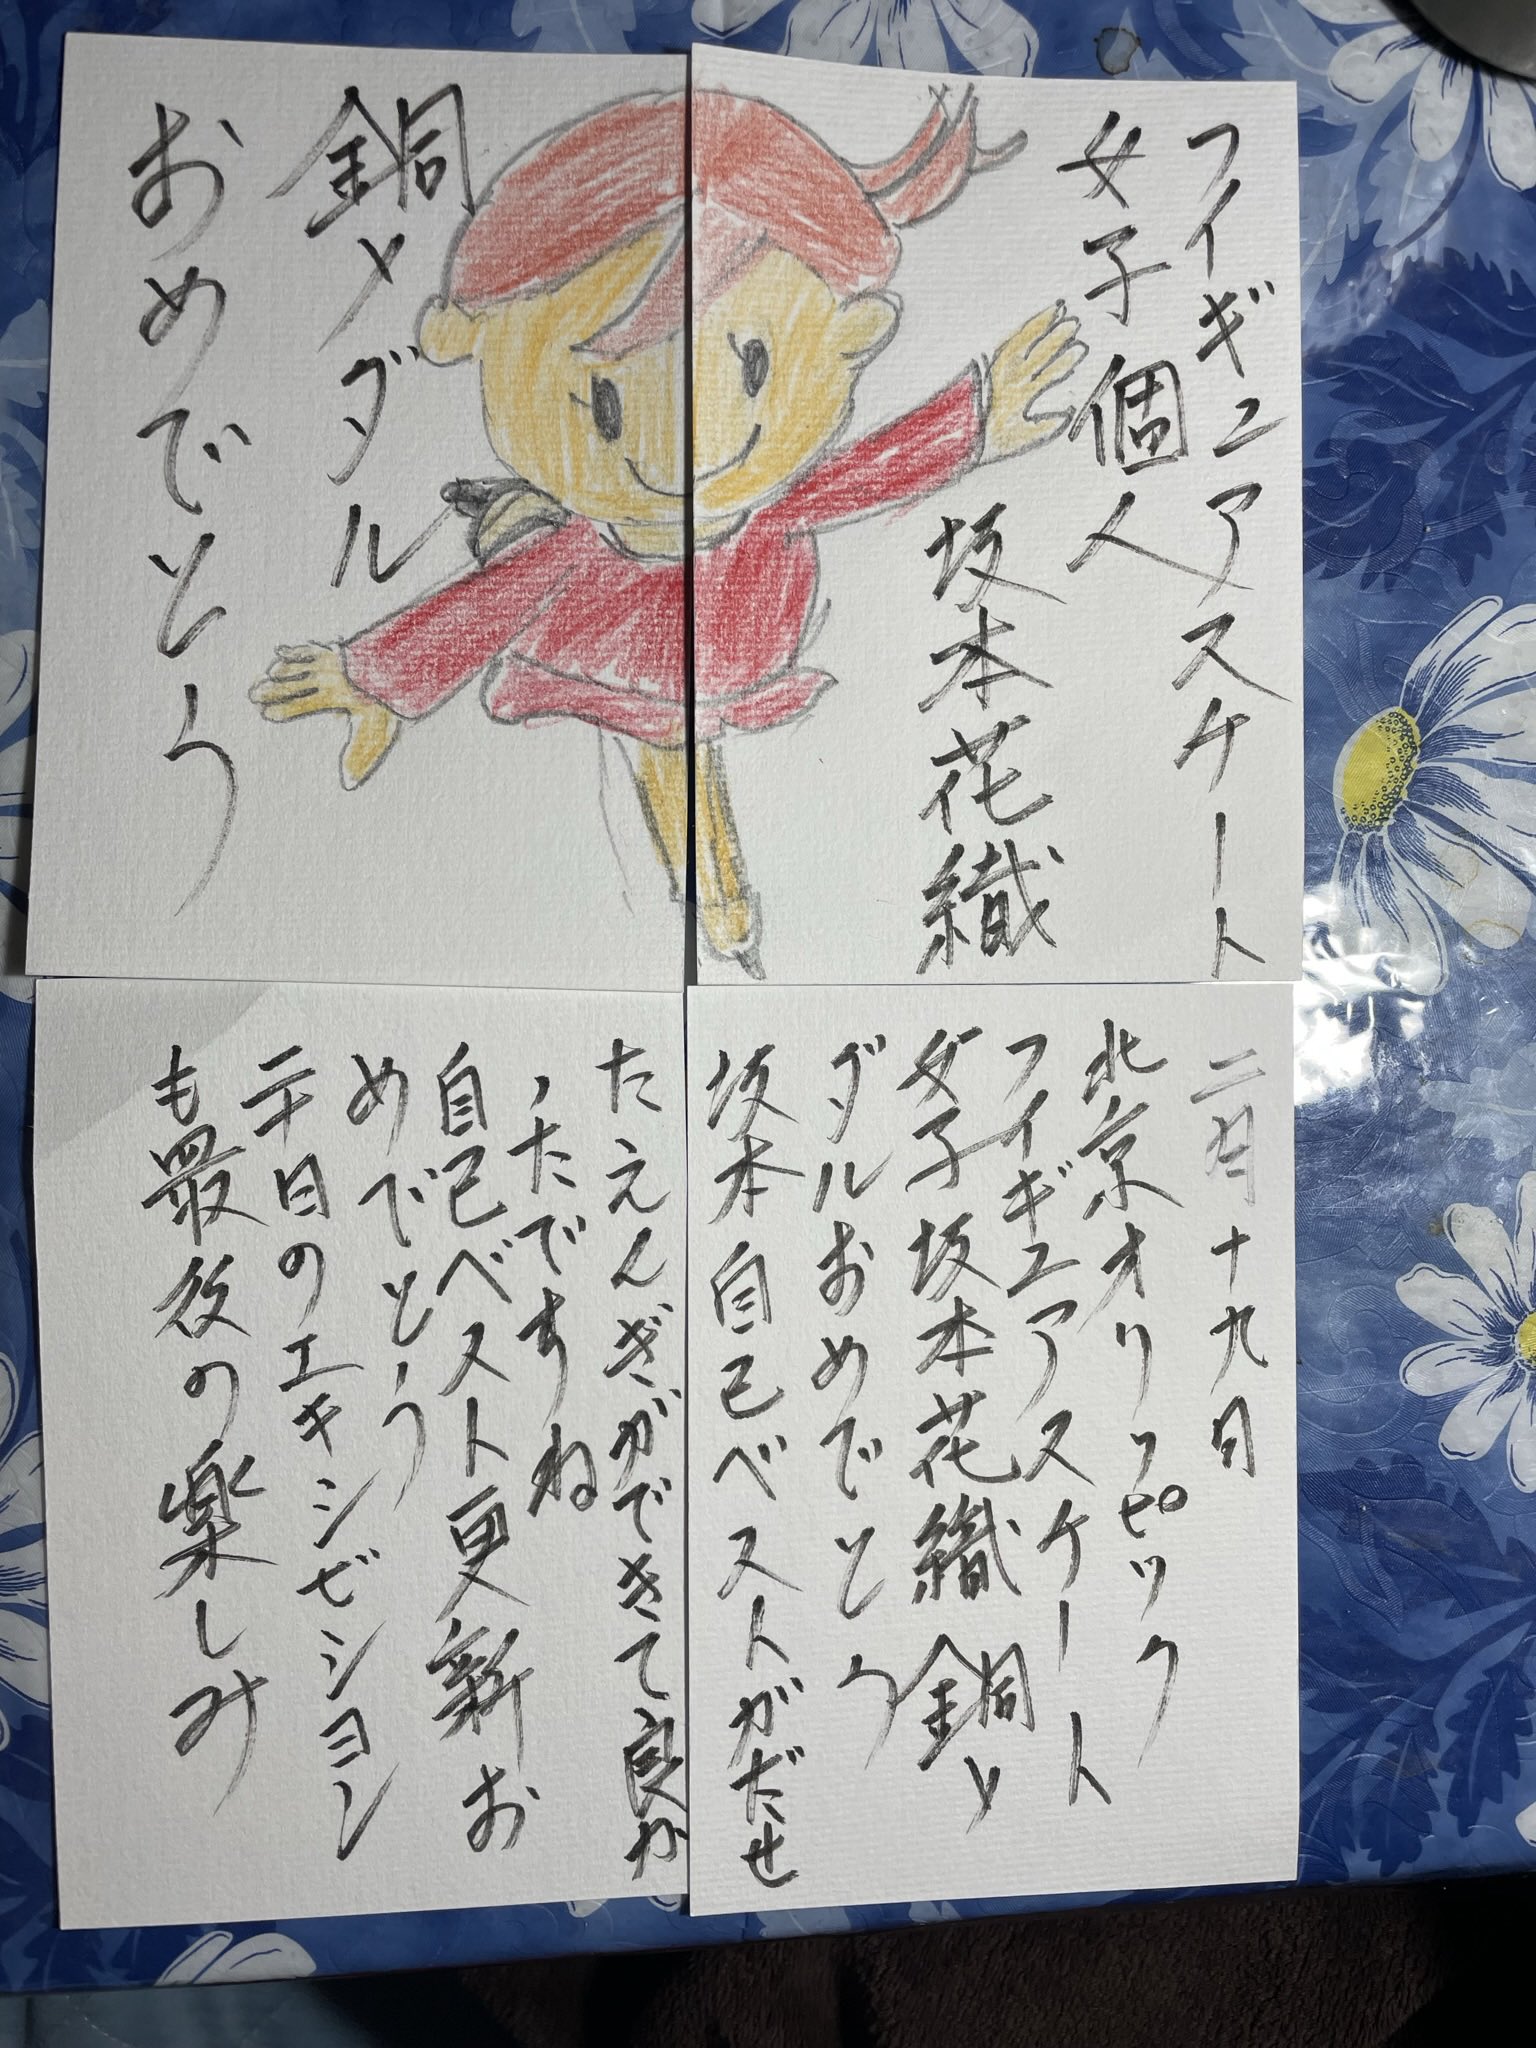 フィギュアスケート
女子個人
坂本花織
銅メダル
おめでとう
二月十九日
北京オリッピック
フィギュアスケート
女子坂本花織銅メ
ダルおめでとう
坂本自己ベストがだせ
たえんぎができて良か
ったですね
自己ベスト更新お
めでとう
二十日のエキシビション
も最後の楽しみ